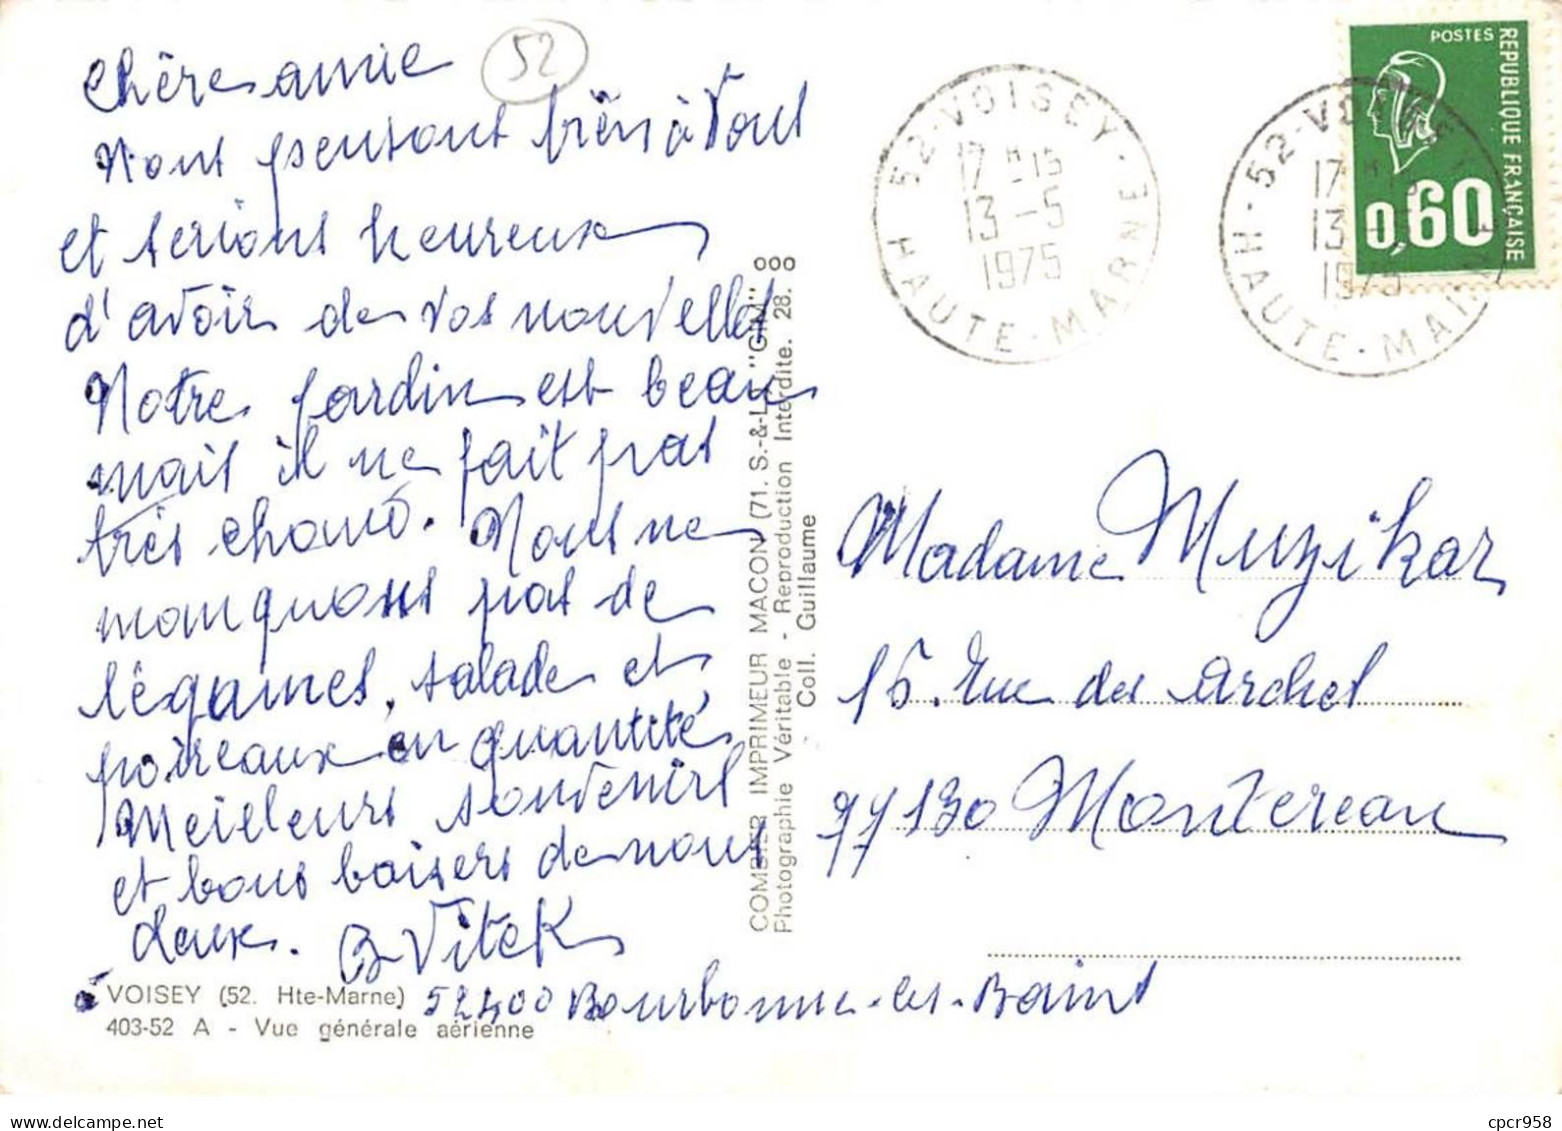 Chère amie
52
Nous pensons bien à Vous
et serions heureux
d'avoir de vos nouvelles
Notre jardin est beau
mais il ne fait pas
très chaud. Nous ne
manquons pas de
légumes, salade et
poireaux en quantité
Meilleurs souvenirs
et bons baisers de nous
deux. B Vitek
52400 Bourbonne-les-Bains
VOISEY (52. Hte-Marne)
403-52 A - Vue générale aérienne
COMBIER IMPRIMEUR MACON (71. S.-&-L.) "CIM" ooo
Photographie Véritable - Reproduction Interdite. 28.
Coll. Guillaume
52-VOISEY-E
17H-15
13-5
1975
HAUTE-MARNE
52-VOISEY
17H15
13-5
1975
HAUTE-MARNE
POSTES
REPUBLIQUE FRANÇAISE
0,60
Madame Muzikar
15. Rue des Arches
77130 Montereau
cpcr958